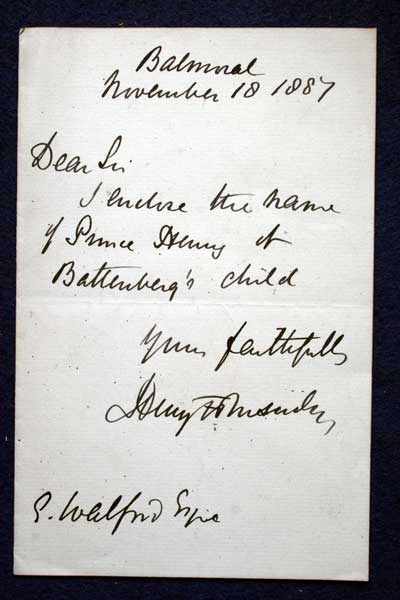 Balmoral
November 18 1887
Dear Sir
I enclose the name
of Prince Henry of
Battenberg's child
Yours faithfully
Henry F Ponsonby
E. Walford Esqre